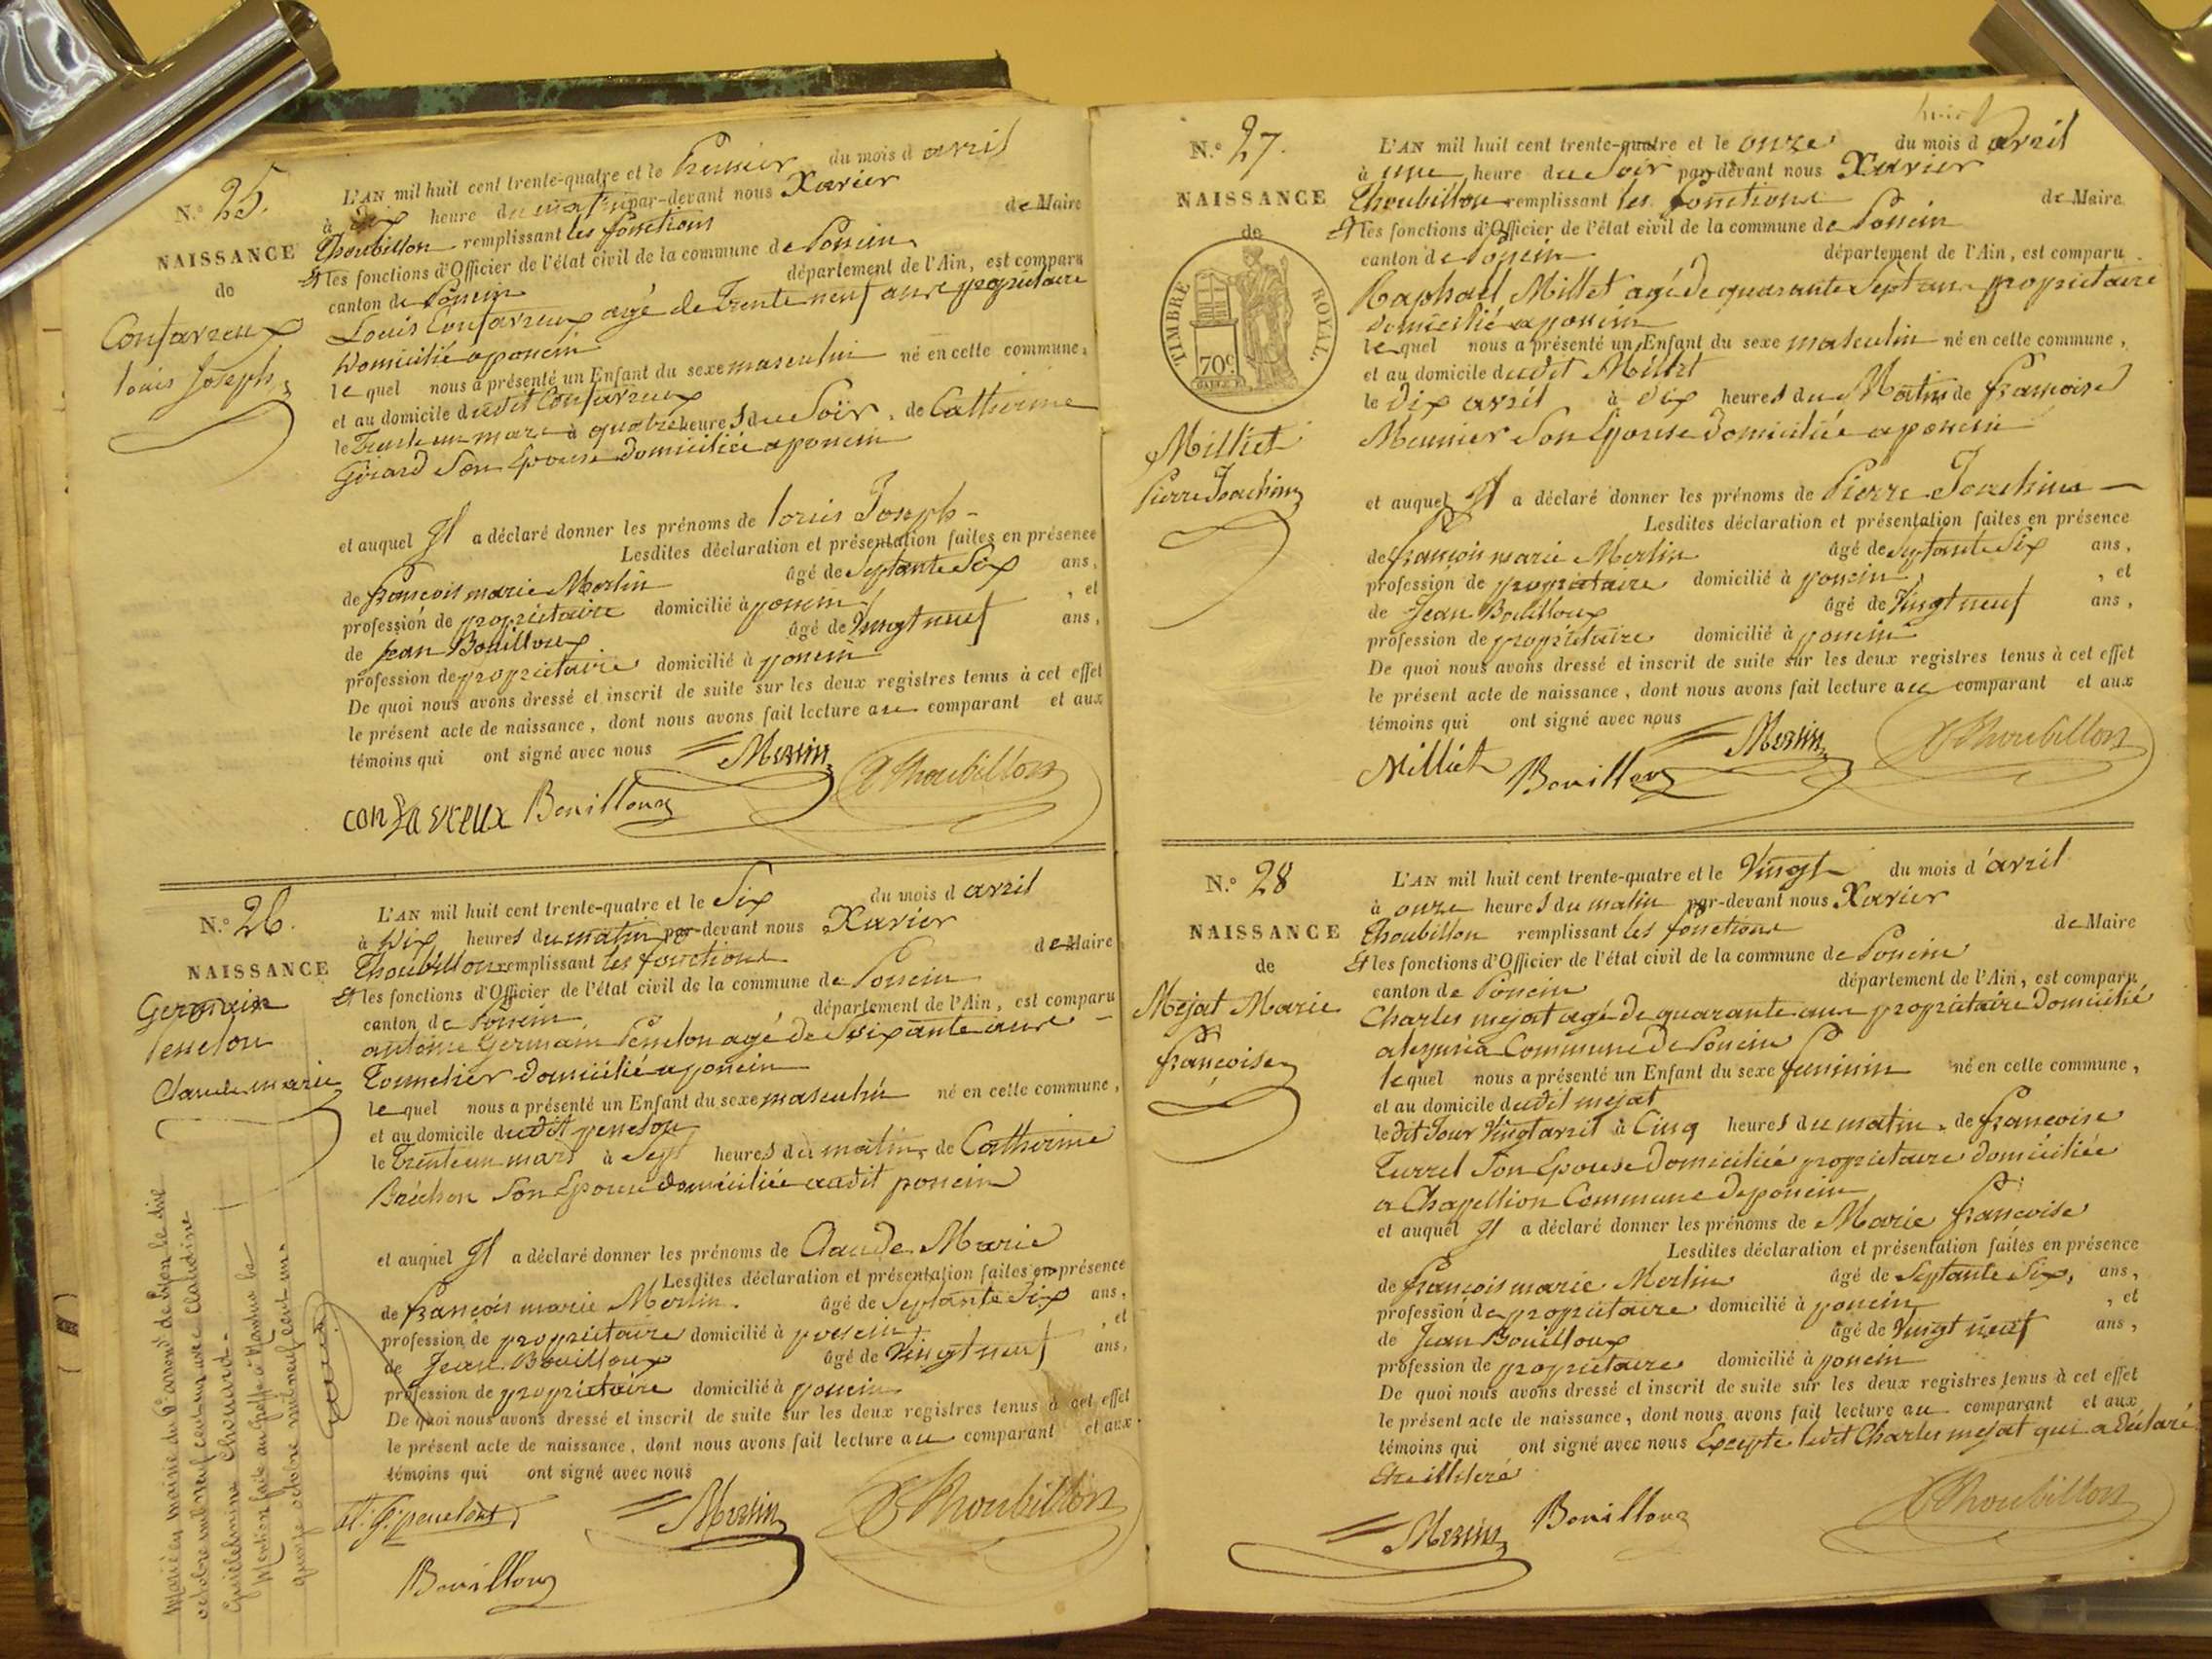 N.° 25.
NAISSANCE
de
Confavreux
louis Joseph
L'AN mil huit cent trente-quatre et le Premier du mois d avril
à dix heure du matin par-devant nous Xavier
Thoubillon remplissant les fonctions de Maire
Et les fonctions d'Officier de l'état civil de la commune de Poncin
canton de Poncin département de l'Ain, est comparu
Louis Confavreux agé de Trente neuf ans propriétaire
Domicilié a poncin
lequel nous a présenté un Enfant du sexe masculin né en cette commune,
et au domicile dudit Confavreux
le Trente un mars à quatre heures du Soir, de Catherine
Girard Son Epouse domiciliée a poncin
et auquel Il a déclaré donner les prénoms de louis Joseph -
Lesdites déclaration et présentation faites en présence
de françois marie Merlin âgé de Septante Six ans,
profession de propriétaire domicilié à poncin, et
de Jean Bouilloux âgé de Vingt neuf ans,
profession de propriétaire domicilié à poncin
De quoi nous avons dressé et inscrit de suite sur les deux registres tenus à cet effet
le présent acte de naissance, dont nous avons fait lecture au comparant et aux
témoins qui ont signé avec nous
Merlin
X Thoubillon
confavreux Bouilloux
N.° 26.
NAISSANCE
Germain
Penelon
Claude marie
L'AN mil huit cent trente-quatre et le Six du mois d avril
à Dix heures du matin par-devant nous Xavier
Thoubillon remplissant les fonctions de Maire
Et les fonctions d'Officier de l'état civil de la commune de Poncin
canton de Poncin département de l'Ain, est comparu
antoine Germain Penelon agé de Soixante ans -
Tonnelier domicilié a poncin
lequel nous a présenté un Enfant du sexe masculin né en cette commune,
et au domicile dudit penelon
le Trente un mars à Sept heures du matin, de Catherine
Bréchon Son Epouse domiciliée audit poncin
et auquel Il a déclaré donner les prénoms de Claude Marie
Lesdites déclaration et présentation faites en présence
de françois marie Merlin. âgé de Septante Six ans,
profession de propriétaire domicilié à poncin, et
de Jean Bouilloux âgé de Vingt neuf ans,
profession de propriétaire domicilié à poncin
De quoi nous avons dressé et inscrit de suite sur les deux registres tenus à cet effet
le présent acte de naissance, dont nous avons fait lecture au comparant et aux
témoins qui ont signé avec nous
penelon
Merlin
X Thoubillon
Bouilloux
Marié en mairie du 6e arrondt de Lyon le dix
octobre mil neuf cent un avec Claudine
Guillelmine Chouard.
Mention faite au Greffe à Nantua le
quinze octobre mil neuf cent un.
N.° 27.
NAISSANCE
de
TIMBRE ROYAL.
70c
Milliet
Pierre Joachim
L'AN mil huit cent trente-quatre et le onze du mois d avril
à une heure du Soir par-devant nous Xavier
Thoubillon remplissant les fonctions de Maire
Et les fonctions d'Officier de l'état civil de la commune de Poncin
canton de Poncin département de l'Ain, est comparu
Raphael Milliet agé de quarante Sept ans propriétaire
domicilié a poncin
lequel nous a présenté un Enfant du sexe masculin né en cette commune,
et au domicile dudit Milliet
le Dix avril à Dix heures du Matin de françoise
Meunier Son Epouse domiciliée a poncin
et auquel Il a déclaré donner les prénoms de Pierre Joachim —
Lesdites déclaration et présentation faites en présence
de françois marie Merlin âgé de Septante Six ans,
profession de propriétaire domicilié à poncin, et
de Jean Bouilloux âgé de Vingt neuf ans,
profession de propriétaire domicilié à poncin
De quoi nous avons dressé et inscrit de suite sur les deux registres tenus à cet effet
le présent acte de naissance, dont nous avons fait lecture au comparant et aux
témoins qui ont signé avec nous
Milliet Bouilloux Merlin X Thoubillon
N.° 28
NAISSANCE
de
Mejat Marie
françoise
L'AN mil huit cent trente-quatre et le Vingt du mois d'avril
à onze heures du matin par-devant nous Xavier
Thoubillon remplissant les fonctions de Maire
Et les fonctions d'Officier de l'état civil de la commune de Poncin
canton de Poncin département de l'Ain, est comparu
Charles mejat agé de quarante ans propriétaire domicilié
Commune de Poncin
lequel nous a présenté un Enfant du sexe feminin né en cette commune,
et au domicile dudit mejat
le dit Jour Vingt avril à Cinq heures du matin, de françoise
Turrel Son Epouse Domiciliée propriétaire domiciliée
a Chapellion Commune de poncin
et auquel Il a déclaré donner les prénoms de Marie françoise
Lesdites déclaration et présentation faites en présence
de françois marie Merlin âgé de Septante Six, ans,
profession de propriétaire domicilié à poncin, et
de Jean Bouilloux âgé de Vingt neuf ans,
profession de propriétaire domicilié à poncin
De quoi nous avons dressé et inscrit de suite sur les deux registres tenus à cet effet
le présent acte de naissance, dont nous avons fait lecture au comparant et aux
témoins qui ont signé avec nous Excepte ledit Charles mejat qui a déclaré
Etre illiteré
Merlin Bouilloux X Thoubillon